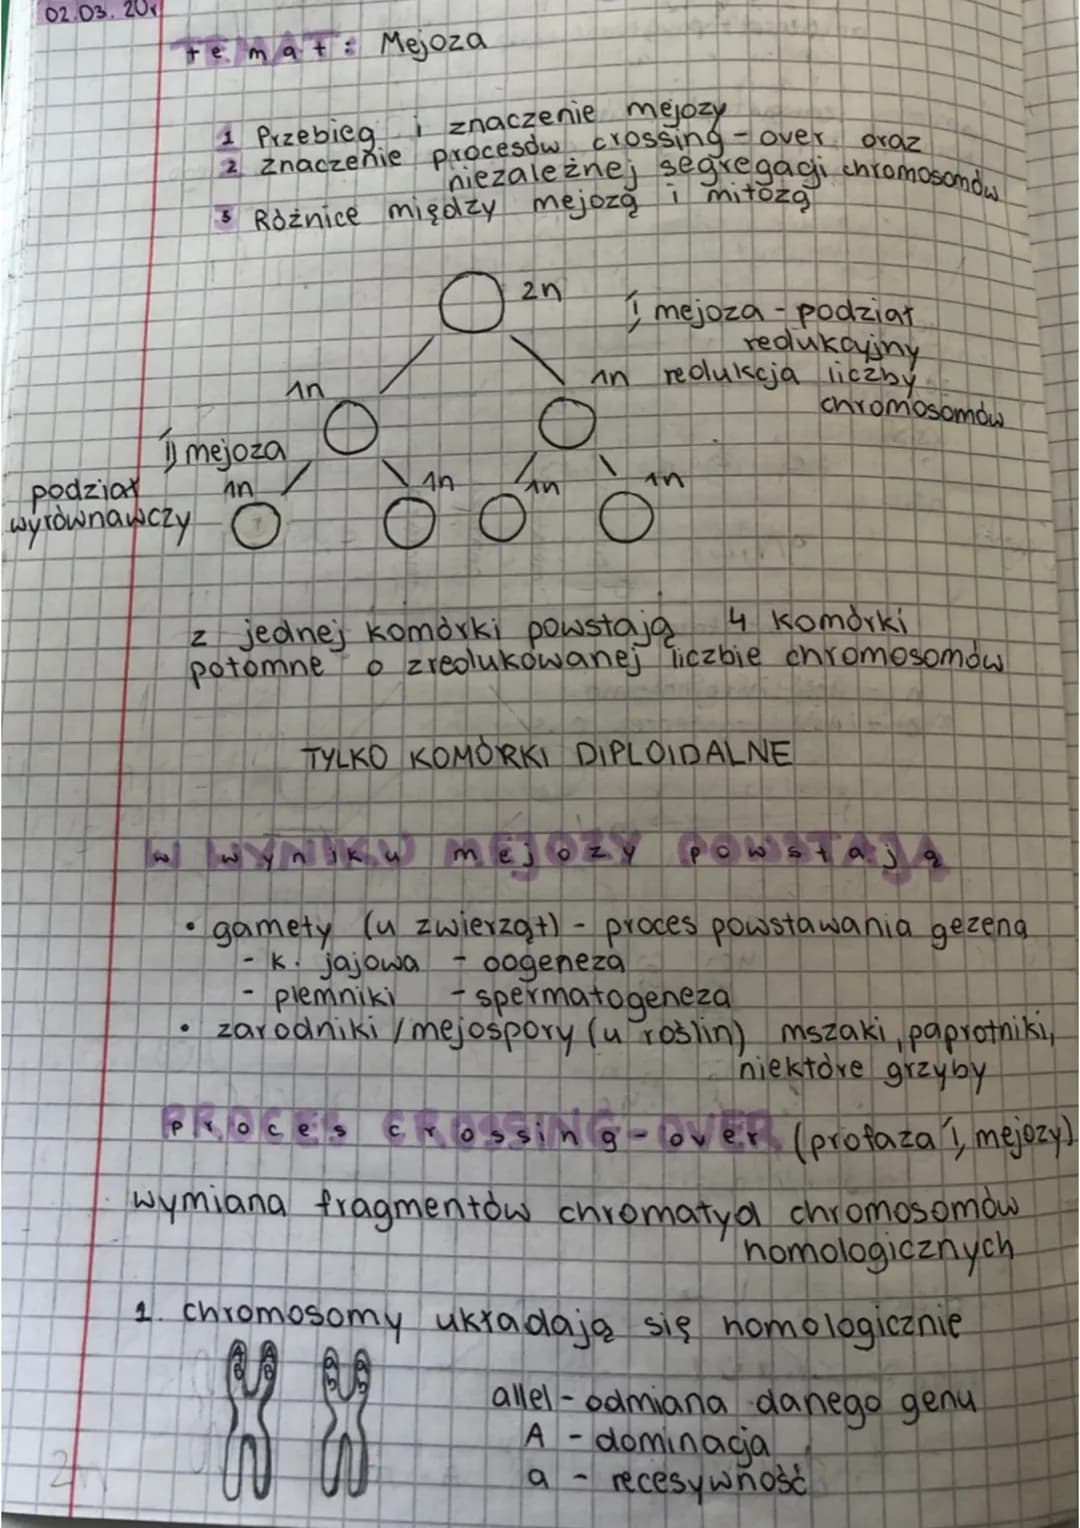 02.03.
temat: Mejoza
1 Przebieg i znaczenie mejozy
2 znaczenie procesów crossing-over oraz
niezależnej segregacji chromosomów
3 Różnice między mejozą i mitozą
2n
I mejoza - podział
redukcyjny
1n
1n redukcja liczby
chromosomów
II mejoza
podział
wyrównawczy
1n
1n
1n
1n
z jednej komórki powstają 4 komórki
potomne o zredukowanej liczbie chromosomów
TYLKO KOMÓRKI DIPLOIDALNE
w wyniku mejozy powstają
• gamety (u zwierząt) - proces powstawania gezeną
- k. jajowa - oogeneza
- plemniki - spermatogeneza
• zarodniki / mejospory (u roślin) mszaki, paprotniki,
niektóre grzyby
proces crossing-over (profaza I, mejozy)
wymiana fragmentów chromatyd chromosomów
homologicznych
1. chromosomy układają się homologicznie
A A a a
B B b b
allel - odmiana danego genu
A - dominacja
a - recesywność